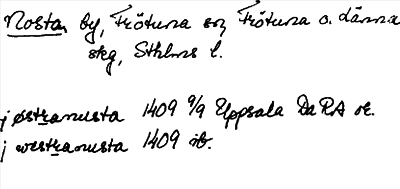 Nosta, by, Frötuna sn, Frötuna o. Länna
skg, Sthlms l.
j østranusta 1409 9/9 Uppsala DaRA or.
j westranusta 1409 ib.